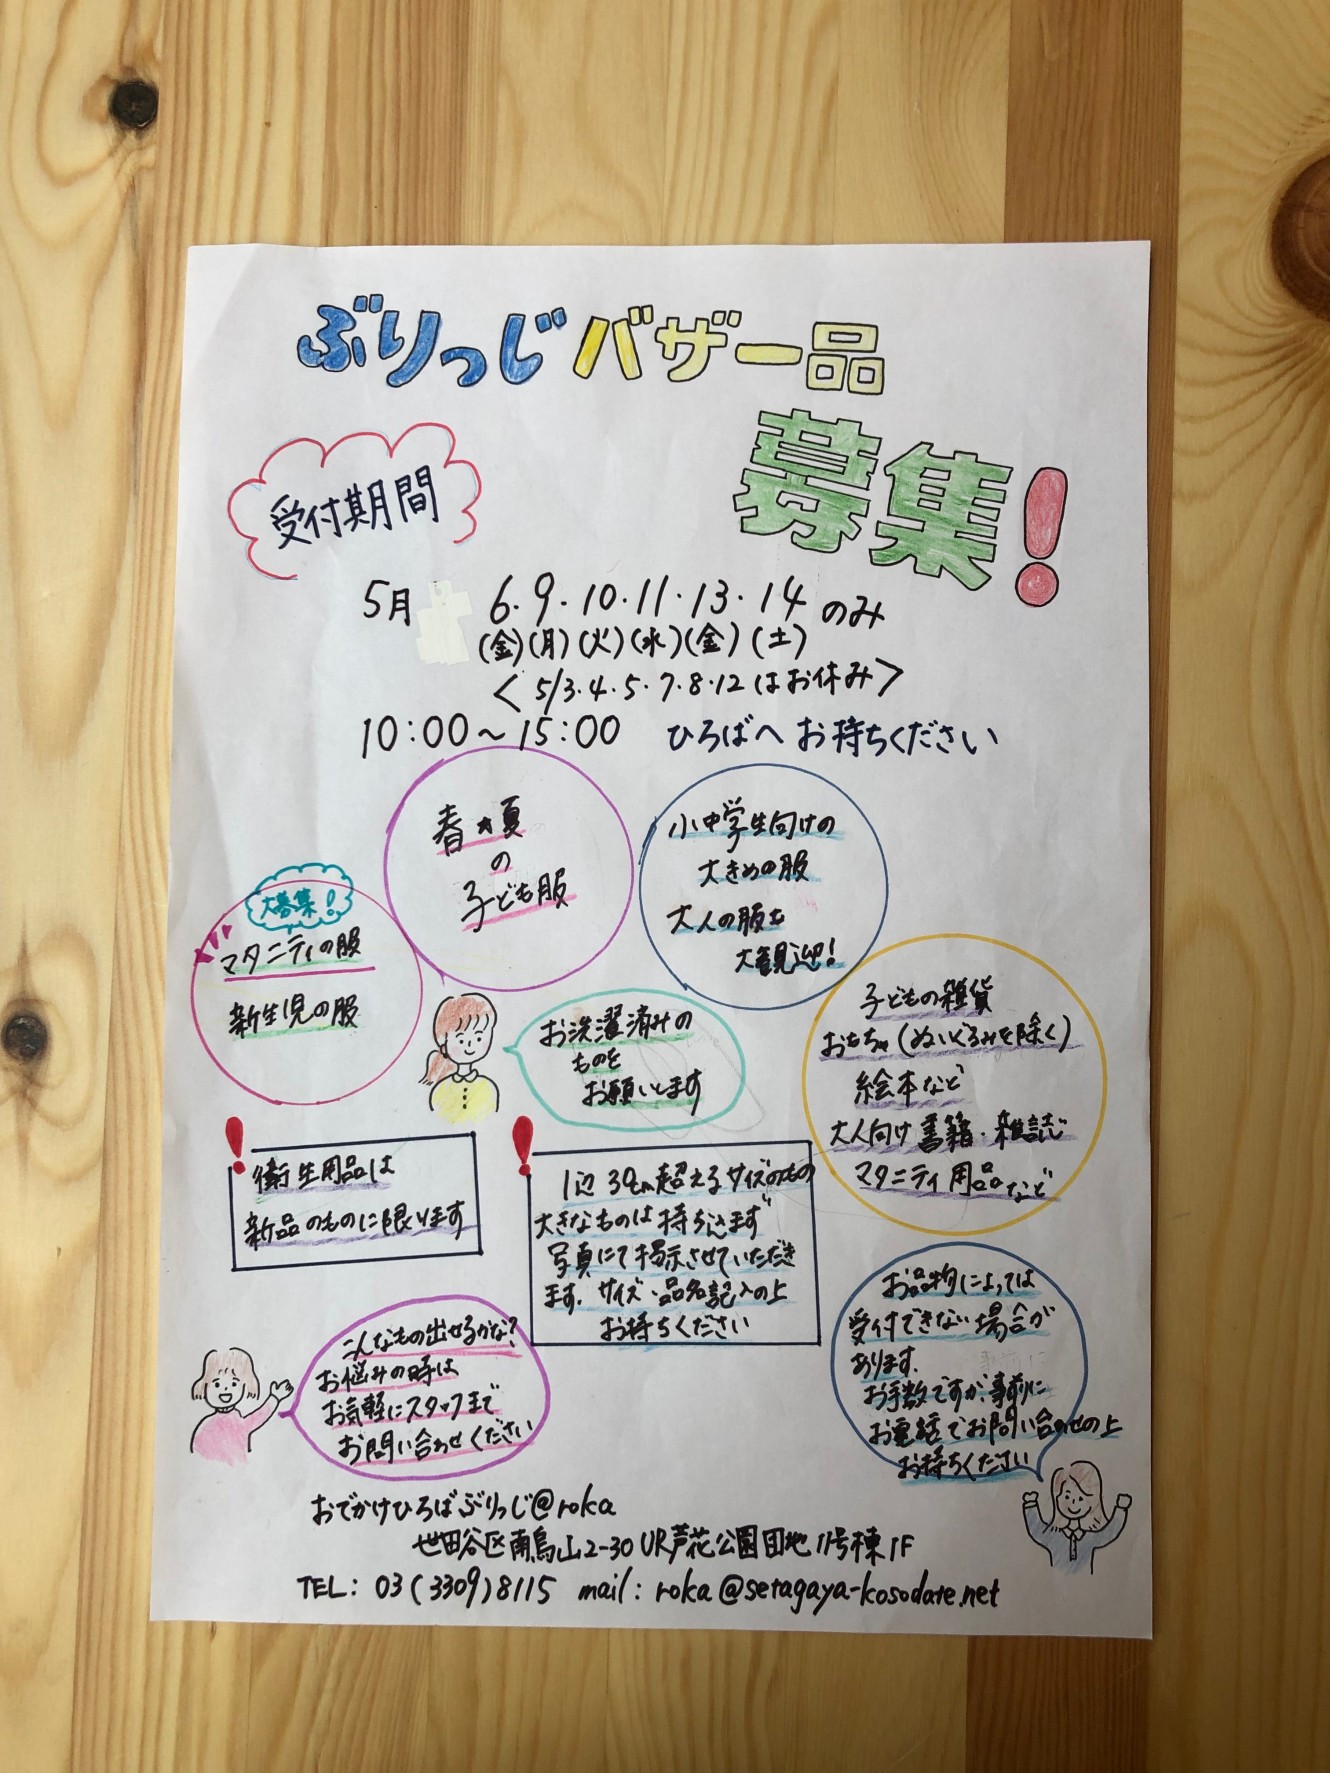 ぶりっじバザー品
募集!
受付期間
5月 6・9・10・11・13・14のみ
(金)(月)(火)(水)(金)(土)
<5/3・4・5・7・8・12はお休み>
10:00~15:00 ひろばへお持ちください
春★夏
の
子ども服
小中学生向けの
大きめの服
大人の服も
大歓迎!
大募集!
マタニティの服
新生児の服
お洗濯済みの
ものを
お願いします
子どもの雑貨
おもちゃ(ぬいぐるみを除く)
絵本など
大人向け書籍・雑誌
マタニティ用品など
衛生用品は
新品のものに限ります
1辺30cm超えるサイズのもの
大きなものは持ち込まず
写真にて掲示させていただき
ます。サイズ・品名記入の上
お持ちください
お品物によっては
受付できない場合が
あります。
お手数ですが、事前に
お電話でお問い合わせの上
お持ちください
こんなもの出せるかな?
お悩みの時は
お気軽にスタッフまで
お問い合わせください
おでかけひろばぶりっじ@roka
世田谷区南烏山2-30UR芦花公園団地11号棟1F
TEL: 03(3309)8115 mail: roka@setagaya-kosodate.net